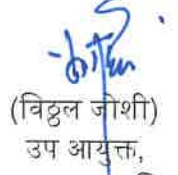 (विठ्ठल जोशी)
उप आयुक्त,